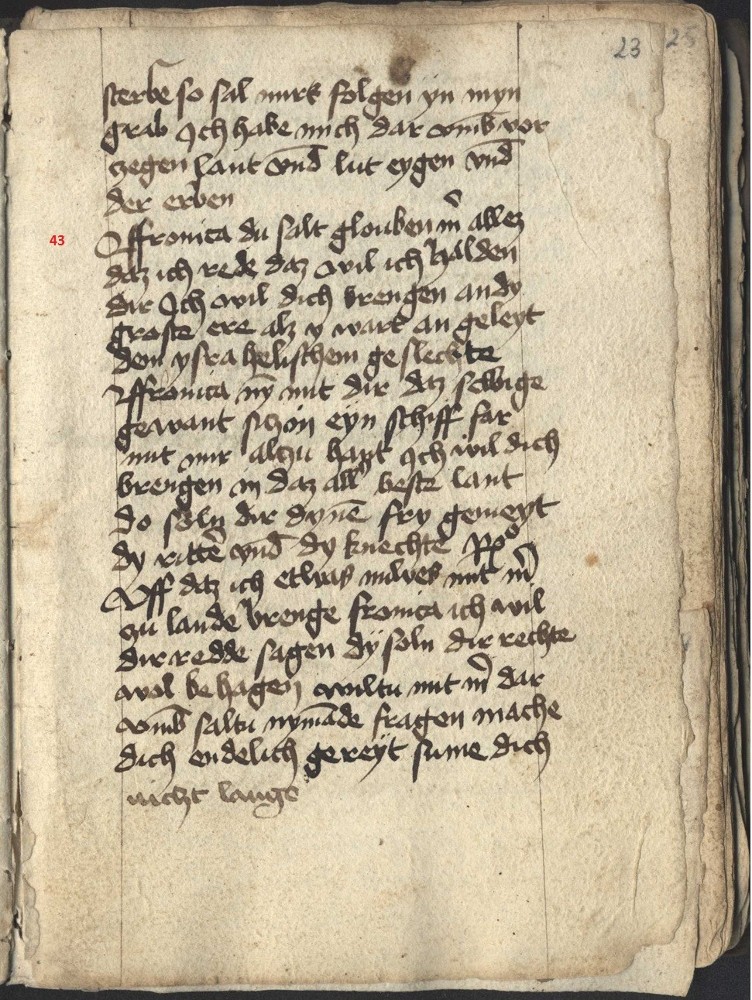 23 25
sterbe so sal mirs folgen yn myn
grab Ich habe mich dar vmb vor
czegen lant vnd lut eygen vnd
der erben
43
Effronica du salt glouben mir allez
daz ich rede daz wil ich halden
dir Ich wil dich brengen an dy
groste ere alz y wart an geleyt
dem ysrahelischem geslechte
Effronica ny mit dir daz selbige
gewant sich in eyn schiff far
mit mir alzu hant Ich wil dich
brengen in daz aller beste lant
do soln dir dyne fry gemeyt
dy ritter vnd dy knechte Ro
Uff daz ich etwas nuwes mit mir
zu lande brenge fronica ich wil
dir redde sagen dy soln dir rechte
wol behagen wiltu mit mir dar
vmb saltu nymāde fragen mache
dich endelich gereyt sume dich
nicht lange